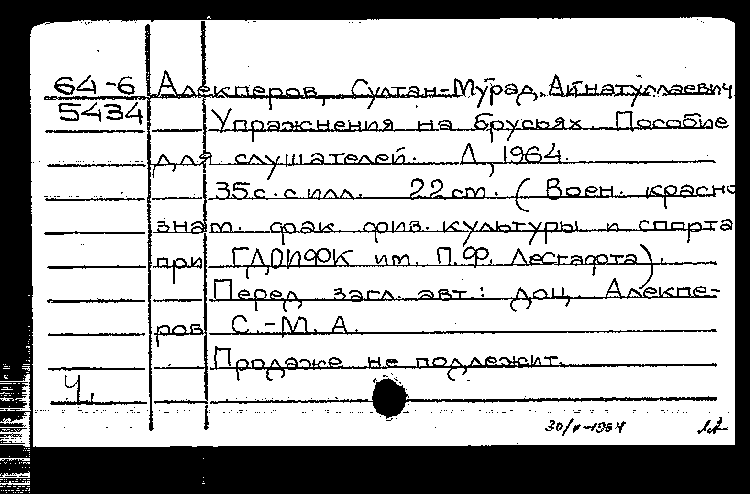 64-6 Алекперов, Султан-Мурад Айнатуллаевич
5434 Упражнения на брусьях. Пособие
для слушателей. Л., 1964.
35 с. с илл. 22 см. (Воен. красно
знам. фак. физ. культуры и спорта
при ГДОИФК им. П.Ф. Лесгафта).
Перед загл. авт.: доц. Алекпе-
ров С.-М. А.
Продаже не подлежит.
Ч.